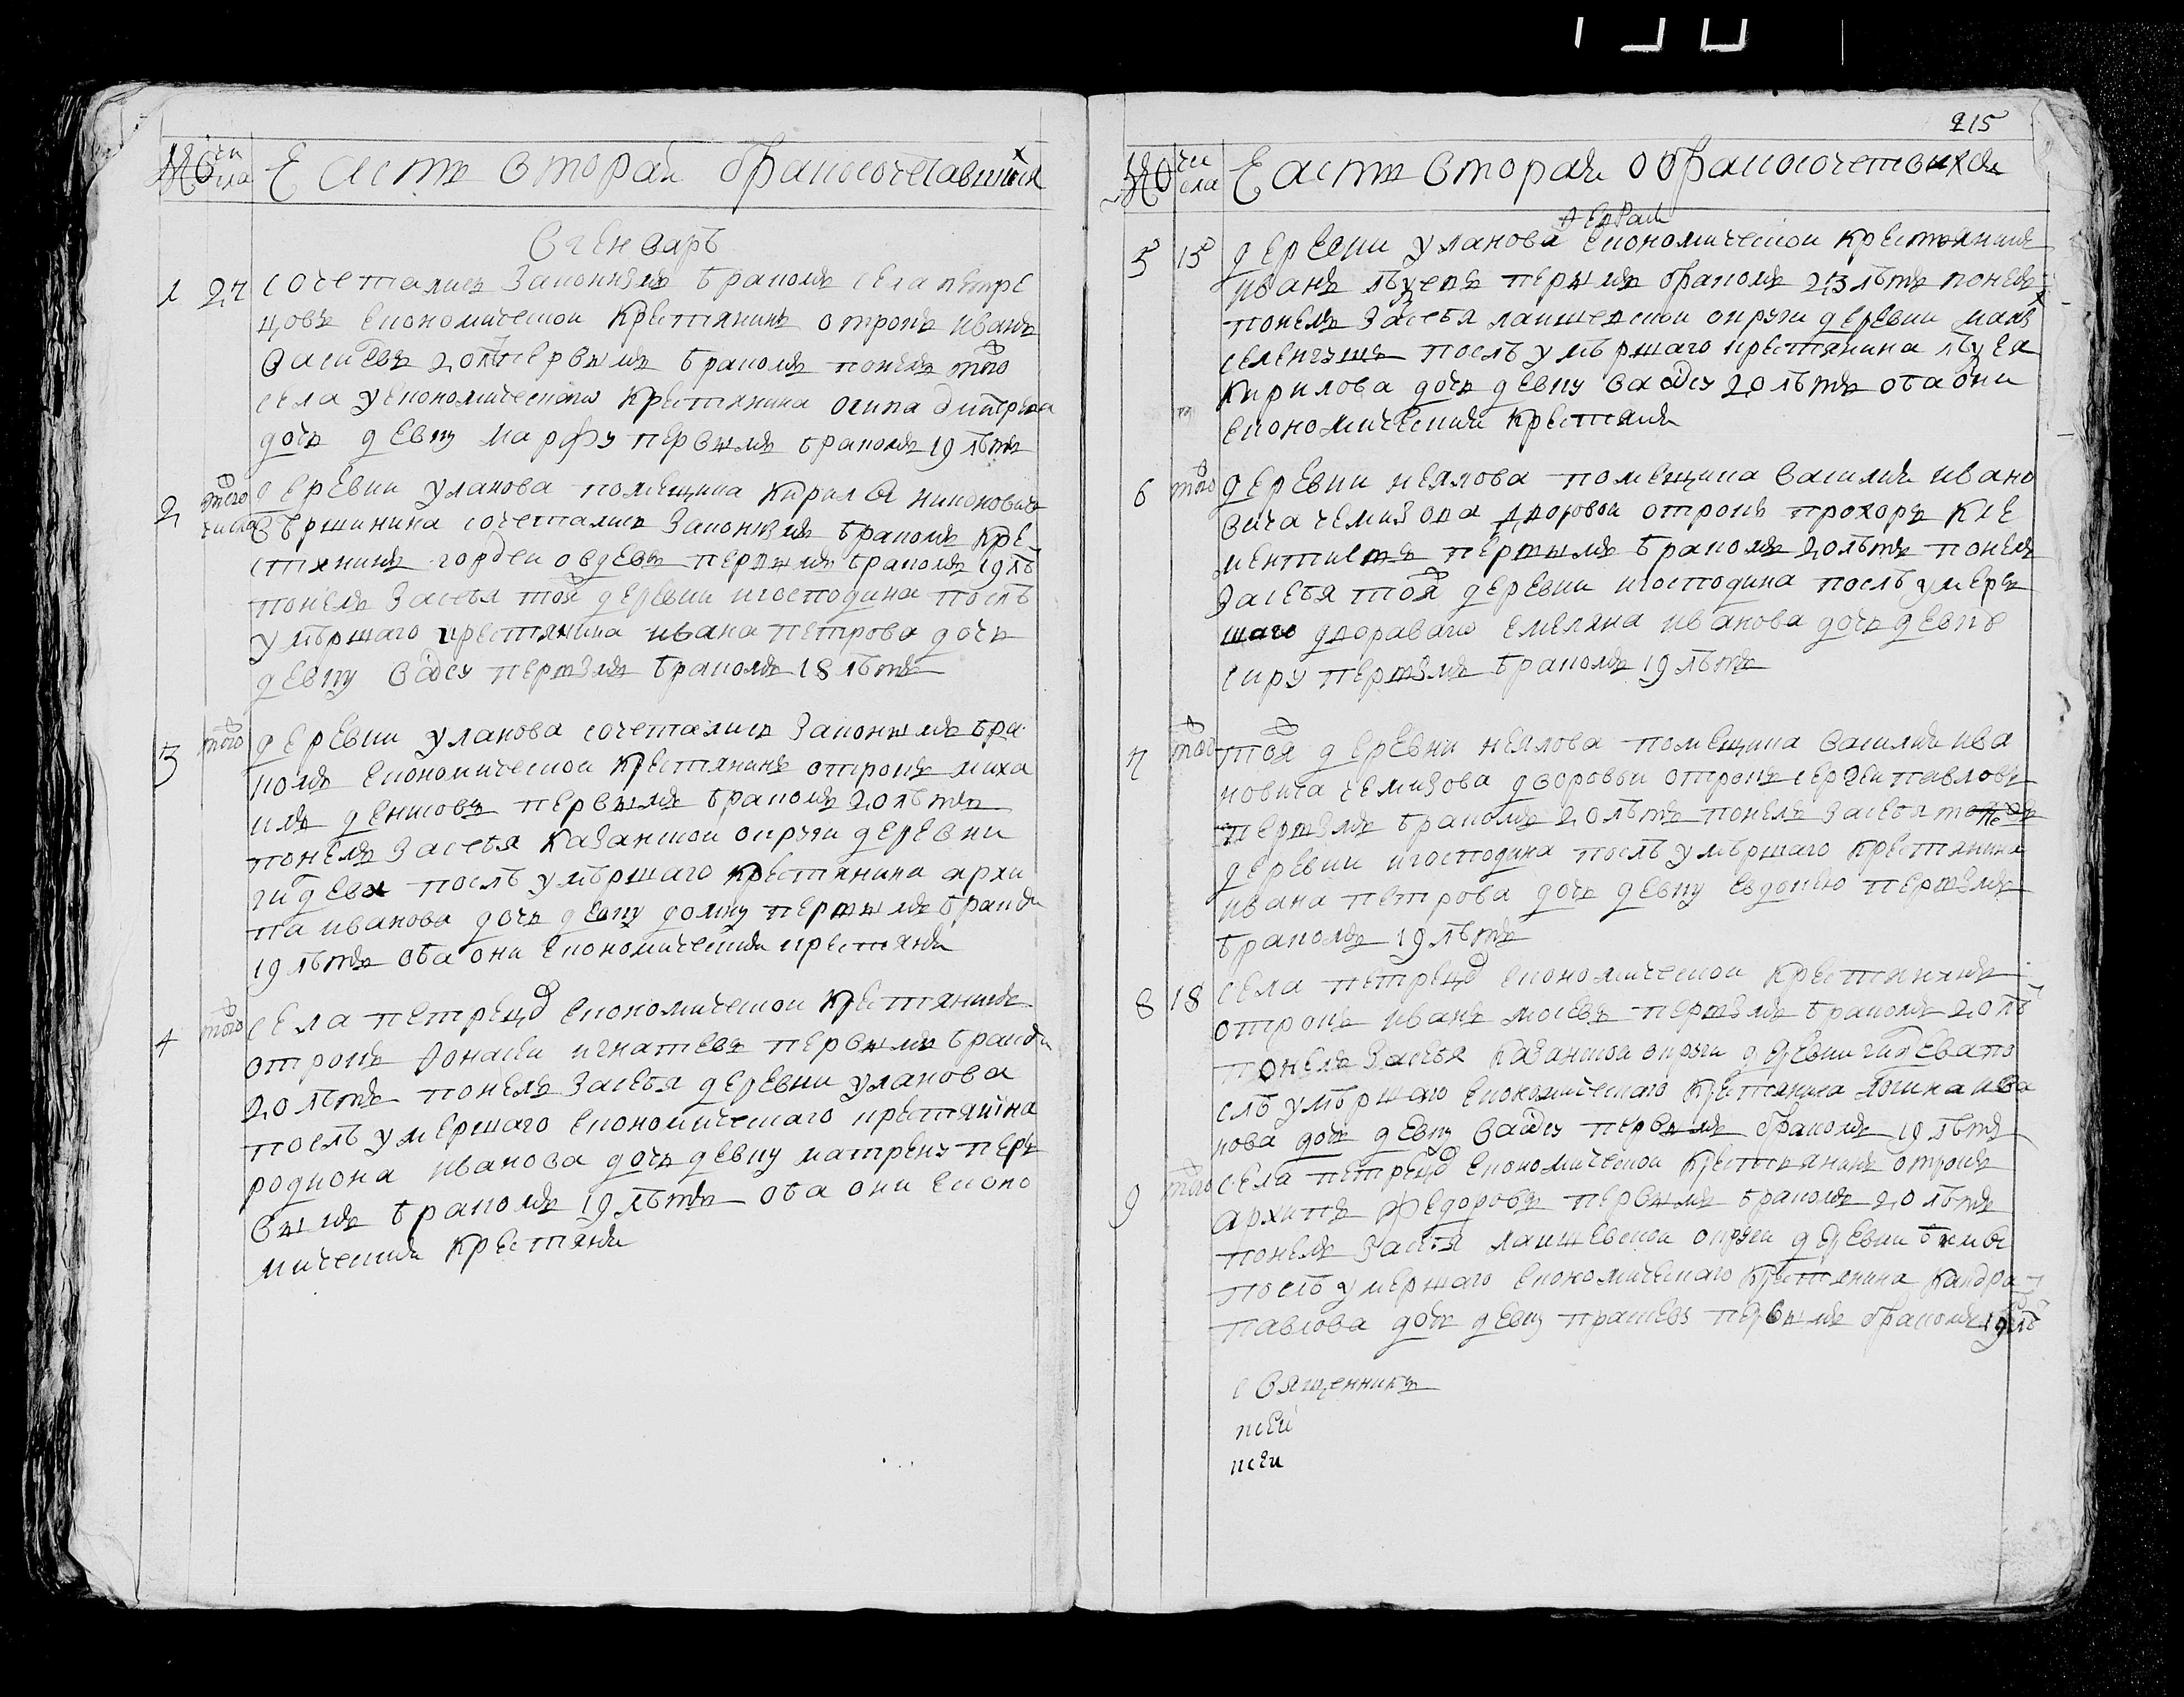 № числа Часть вторая бракосочетавшихся
Генварь
1 27 сочетались законным браком села петре
цовъ економической крестянинъ отрокъ иванъ
василевъ 20 лѣ первымъ бракомъ понелъ того
села у економическаго крестянина осипа дмитрева
дочь девку марфу первымъ бракомъ 19 лѣтъ
2 того числа деревни уланова помещика кирила никоновича
вершинина сочетались законнымъ бракомъ кре
стянинъ гордеи овдеевъ первымъ бракомъ 19 лѣ
понелъ засебя тоя деревни игосподина послѣ
умѣршаго крестянина ивана петрова дочь
девку васу первымъ бракомъ 18 лѣтъ
3 того деревни уланова сочетались законнымъ бра
комъ економической крестянинъ отрокъ миха
илъ денисовъ первымъ бракомъ 20 лѣтъ
понелъ засебя казанской округи деревни
гидева послѣ умѣршаго крестянина архи
па иванова дочь девку домну первымъ бракомъ
19 лѣтъ оба они економически крестяня
4 того села петрецо економической крестянинъ
отрокъ афонасеи игнатевъ первымъ бракомъ
20 лѣтъ понелъ засебя деревни уланова
послѣ умершаго економическаго крестянина
родиона иванова дочь девку матрену перъ
вымъ бракомъ 19 лѣтъ оба они еконо
мически крестяня
215
№ числа Часть вторая обракосочетовихся
Февраля
5 15 деревни уланова економической крестянинъ
иванъ первымъ бракомъ 23 лѣтъ понелъ
понелъ засебя лаишевской округи деревни малых
селенгушъ послѣ умѣршаго крестянина
кирилова дочь девку васу 20 лѣтъ оба они
економически крестяня
6 того деревни неялова помещика василия ивано
вича чемизова дворовой отрокъ прохоръ кле
ментиевъ первымъ бракомъ 20 лѣтъ понелъ
засебя тоя деревни игосподина послѣ умеръ
шаго двороваго емеляна иванова дочь девкѣ
киру первымъ бракомъ 19 лѣтъ
7 того тоя деревни неялова помещика василия ива
новича чемизова дворовои отрокъ сергеи павловъ
первымъ бракомъ 20 лѣтъ понелъ засебя
деревни игосподина послѣ умѣршаго крестянина
ивана петрова дочь девку евдокею первымъ
бракомъ 19 лѣтъ
8 18 села петрецо економической крестянинъ
отрокъ иванъ мосевъ первымъ бракомъ 20 лѣ
понелъ засебя казанской округи деревни гидева по
слѣ умѣршаго економическаго крестянина ива
нова дочь девку васу первымъ бракомъ 19 лѣтъ
9 того села петрецо економической крестянинъ отрокъ
архипъ федоровъ первымъ бракомъ 20 лѣтъ
понелъ засебя лаишевской округи деревни
послѣ умершаго економическаго крестянина кандра
павлова дочь девку прасеву первымъ бракомъ 19 лѣ
священникъ